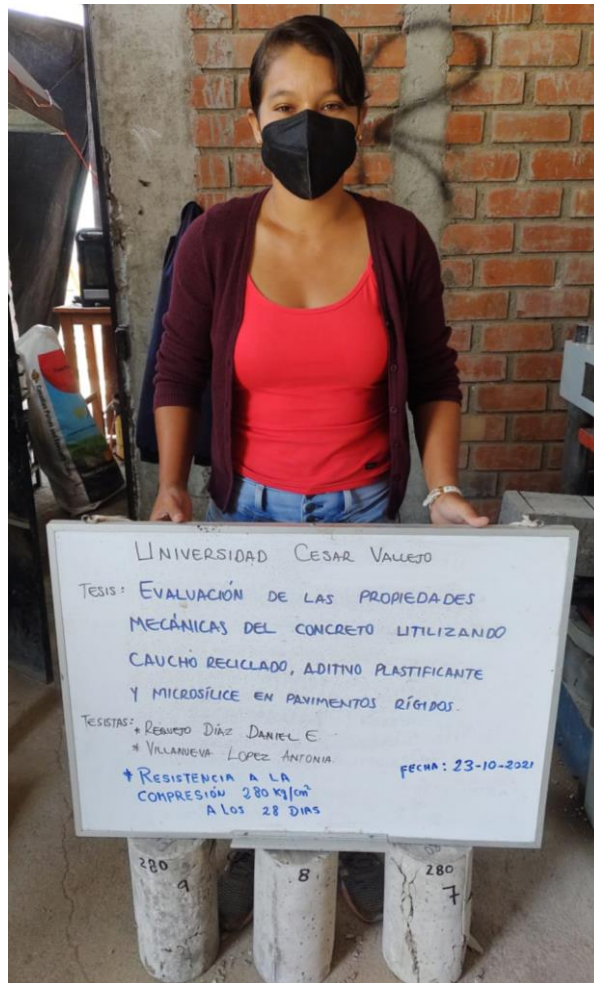 UNIVERSIDAD CESAR VALLEJO
TESIS: EVALUACIÓN DE LAS PROPIEDADES
MECÁNICAS DEL CONCRETO UTILIZANDO
CAUCHO RECICLADO, ADITIVO PLASTIFICANTE
Y MICROSÍLICE EN PAVIMENTOS RÍGIDOS.
TESISTAS: * REQUEJO DÍAZ DANIEL E.
* VILLANUEVA LOPEZ ANTONIA.
FECHA: 23-10-2021
* RESISTENCIA A LA
COMPRESIÓN 280 kg/cm²
A LOS 28 DIAS
280
9
8
280
7